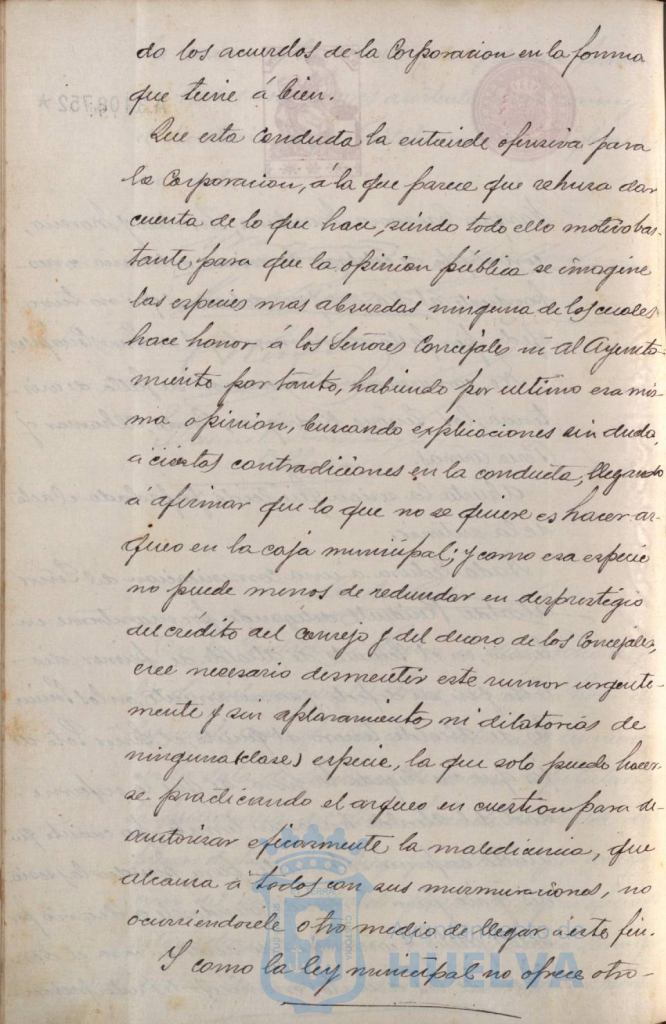 do los acuerdos de la Corporacion en la forma
que tiene á bien.
Que esta conducta la entiende ofensiva para
la Corporacion, á la que parece que rehusa dar
cuenta de lo que hace, siendo todo ello motivo bas-
tante para que la opinion pública se imagine
las especies mas absurdas ninguna de las cuales
hace honor á los Señores Concejales ni al Ayunta-
miento por tanto, habiendo por ultimo esa mis-
ma opinion, buscando esplicaciones sin duda,
á ciertas contradiciones en la conducta, llegando
á afirmar que lo que no se quiere es hacer ar-
queo en la caja municipal; y como esa especie
no puede menos de redundar en desprestigio
del crédito del Consejo y del decoro de los Concejales,
cree necesario desmentir este rumor urgente-
mente y sin aplazamiento ni dilatorias de
ninguna (clase) especie, la que solo puede hacer-
se practicando el arqueo en cuestion para de-
sautorizar eficazmente la maledicencia, que
alcanza á todos con sus murmuraciones, no
ocurriendosele otro medio de llegar á este fin.
Y como la ley municipal no ofrece otro-
HUELVA